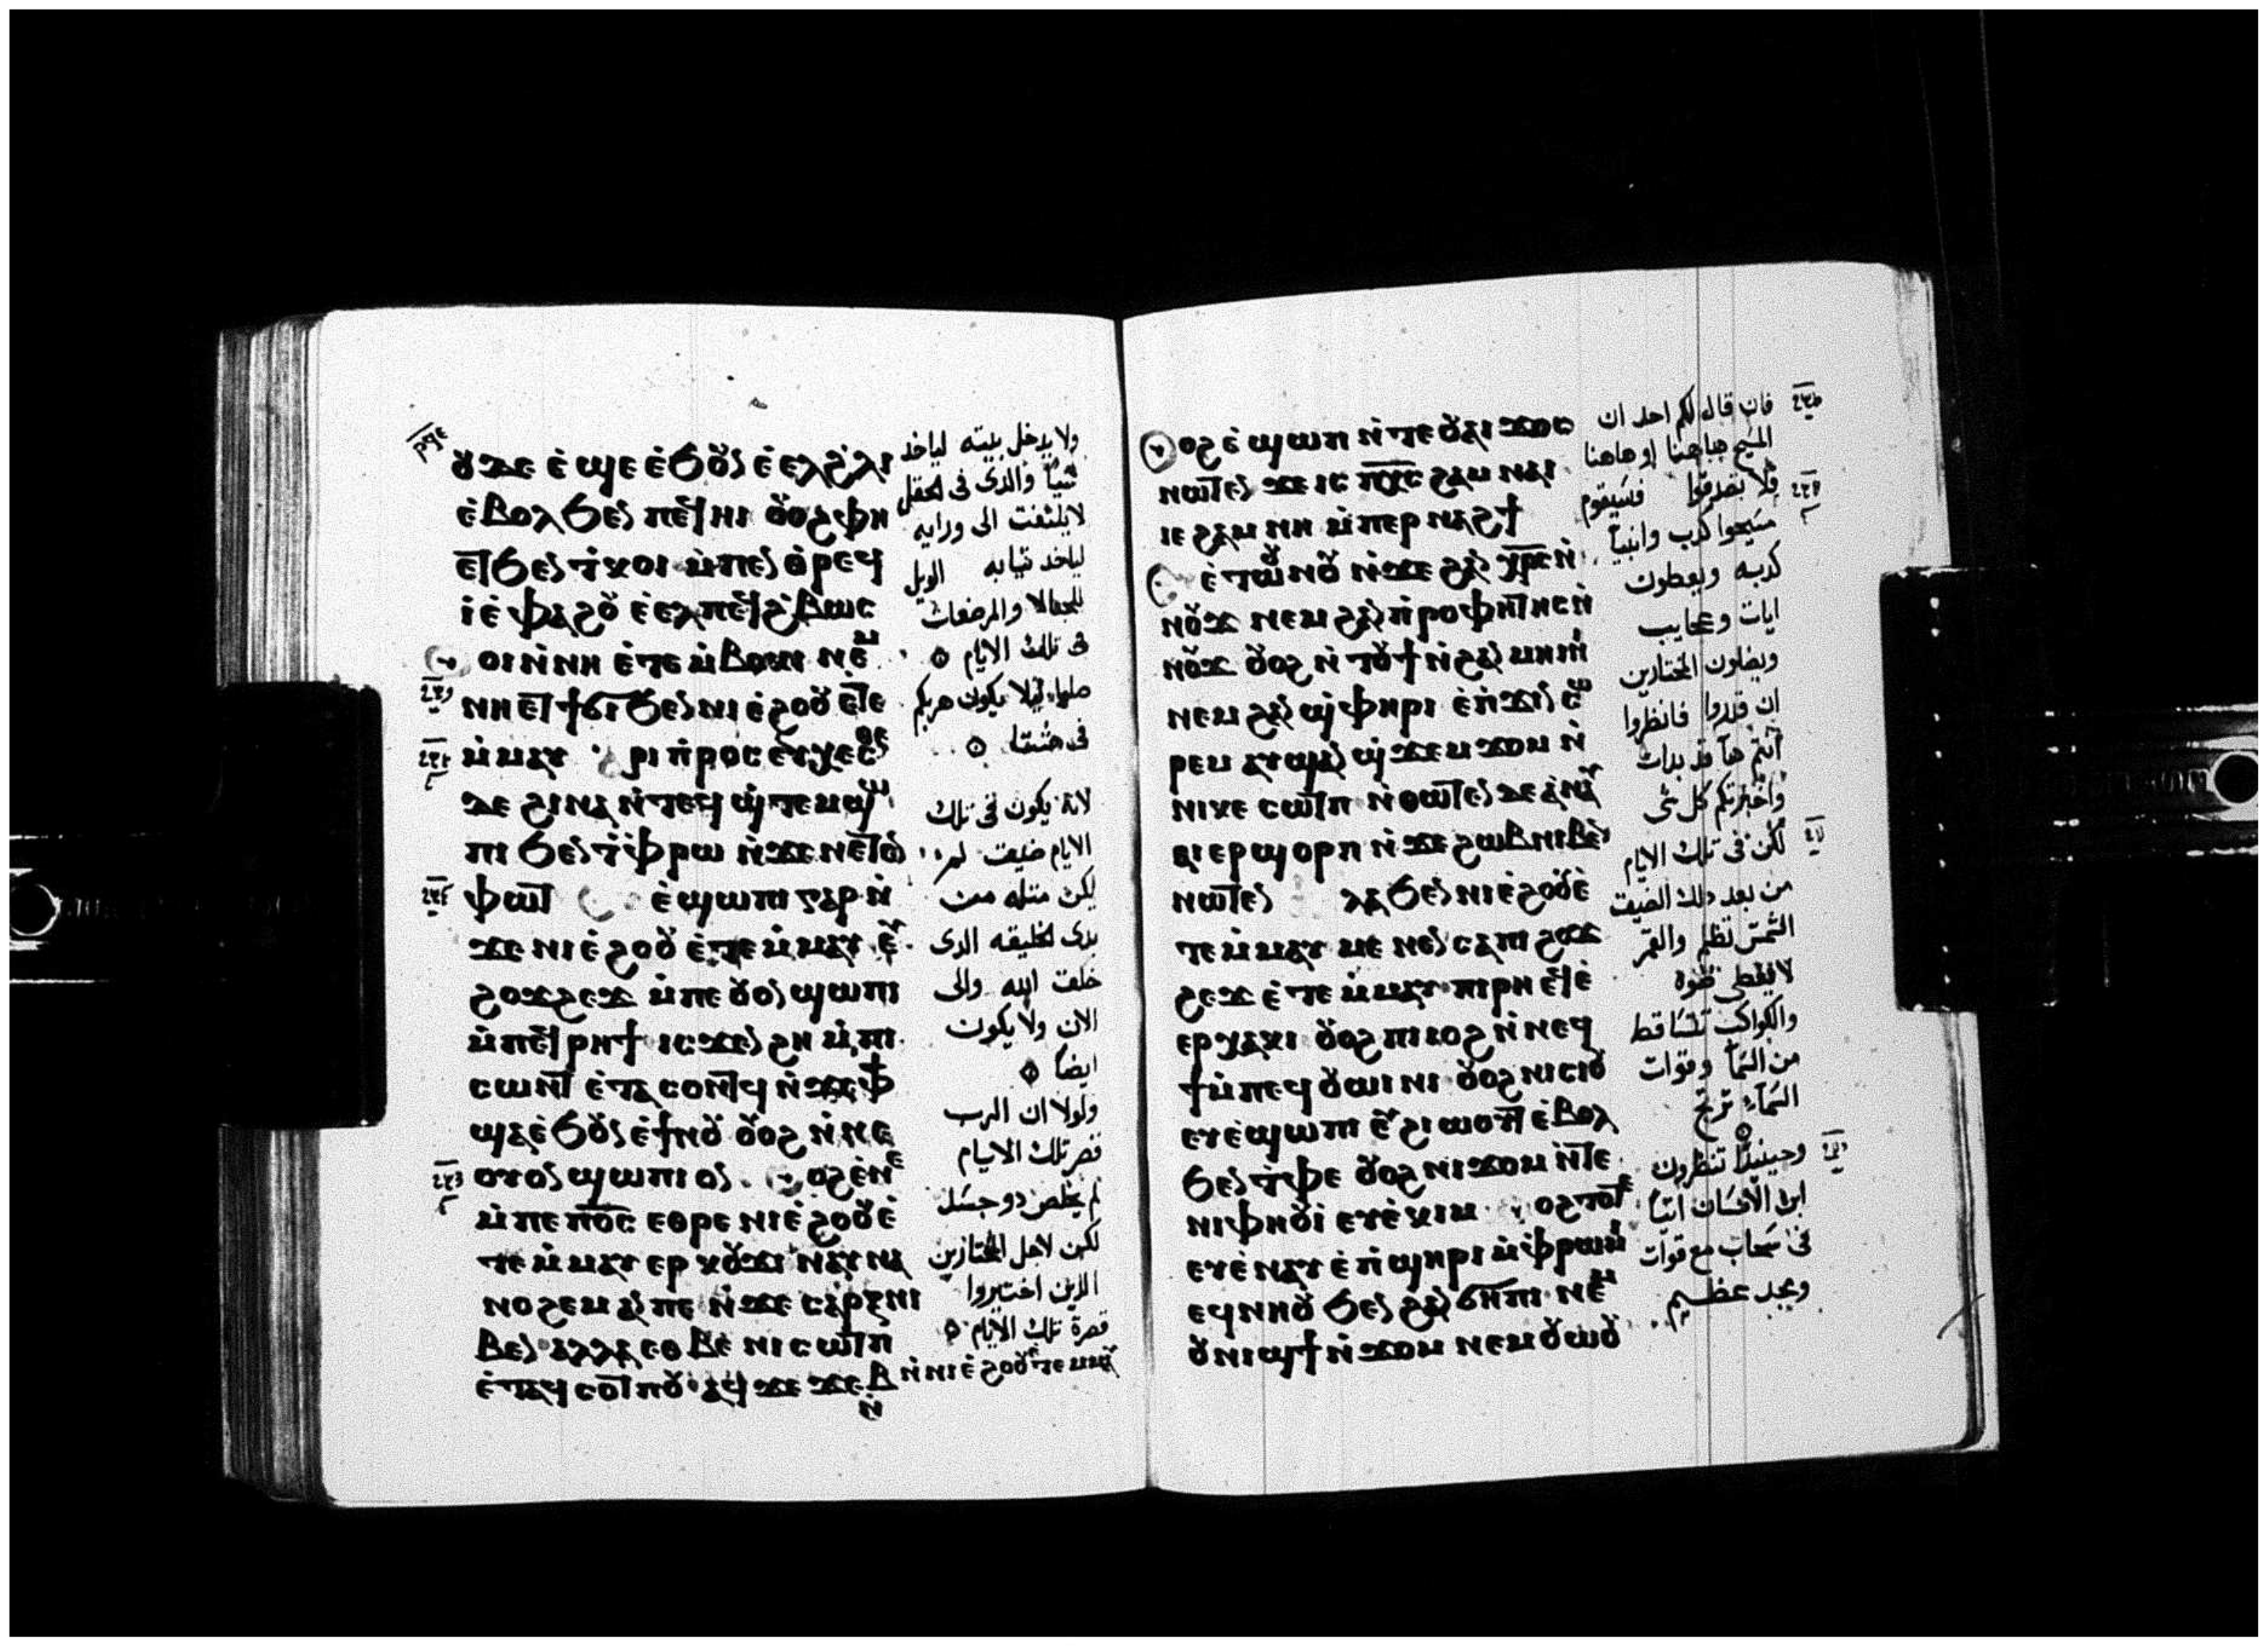 ⲟⲩⲇⲉ ⲉ̀ϣⲉ ⲉ̀ϧⲟⲩⲛ ⲉ̀ⲉⲗ ϩ̀ⲗⲓ
ⲉ̀ⲃⲟⲗϧⲉⲛ ⲡⲉϥⲏⲓ ⲟⲩⲟϩ ⲫⲏ
ⲉⲧϧⲉⲛ ⲧ̀ⲕⲟⲓ ⲙ̀ⲡⲉⲛⲑ̀ⲣⲉϥ
ⲓ̀ ⲉ̀ⲫⲁϩⲟⲩ ⲉ̀ⲉⲗ ⲡⲉϥϩ̀ⲃⲱⲥ
ⲟⲓ ⲛ̀ⲛⲏ ⲉ̀ⲧⲉⲙ̀ⲃⲟⲕⲓ ⲛⲉⲙ
ⲛⲏⲉⲧϯϭⲓ ϧⲉⲛ ⲛⲓⲉ̀ϩⲟⲟⲩ ⲉ̀ⲧⲉ
ⲙ̀ⲙⲁⲩ ⲣⲓⲡ̀ⲣⲟⲥⲉⲩⲭⲉⲥⲑⲉ
ⲇⲉ ϩⲓⲛⲁ ⲛ̀ⲧⲉϥϣ̀ⲧⲉⲙϣⲱ
ⲡⲓ ϧⲉⲛ ⲧ̀ⲫ̀ⲣⲱ ⲛ̀ϫⲉ ⲛⲉⲧⲉⲛ
ⲫⲱⲧ ⲉ̀ϣⲱⲡⲓ ⲅⲁⲣ ⲛ̀
ϫⲉ ⲛⲓⲉ̀ϩⲟⲟⲩ ⲉ̀ⲧⲉⲙ̀ⲙⲁⲩ ⲉⲩ
ϩⲟϫϩⲉϫ ⲙ̀ⲡⲉ ⲟⲩⲟⲛ ϣⲱⲡⲓ
ⲙ̀ⲡⲉϥⲣⲏϯ ⲓⲥϫⲉⲛ ϩⲏ ⲙ̀ⲡⲓ
ⲥⲱⲛⲧ ⲉ̀ⲧⲁⲥⲟⲛⲧϥ ⲛ̀ϫⲉ ⲫϯ
ϣⲁⲉ̀ϧⲟⲩⲛ ⲉ̀ϯⲛⲟⲩ ⲟⲩⲟϩ ⲛ̀ⲛⲉ
ⲟⲩⲟⲛ ϣⲱⲡⲓ ⲟⲛ ⲟϩ ⲉ̀ⲛⲉ
ⲙ̀ⲡⲉ ⲡⲟ̅ⲥ̅ ⲉⲑⲣⲉ ⲛⲓⲉ̀ϩⲟⲟⲩ ⲉ̀
ⲧⲉⲙ̀ⲙⲁⲩ ⲉⲣⲕⲟⲩϫⲓ ⲛⲁⲩⲛⲁ
ⲛⲟϩⲉⲙ ⲁⲛ ⲡⲉ ⲛ̀ϫⲉ ⲥⲁⲣⲝ ⲛⲓ
ⲃⲉⲛ ⲁⲗⲗⲁ ⲉⲑⲃⲉ ⲛⲓⲥⲱⲧⲡ
ⲉ̀ⲧⲁϥⲥⲟⲧⲡⲟⲩ ⲁϥϫⲉϫⲉⲃ
ⲛ̀ⲛⲓⲉ̀ϩⲟⲟⲩ ⲉ̀ⲧⲉⲙⲙⲁⲩ
ولا يدخل بيته لياخد
شيا والذى فى الحقل
لا يلتفت الى ورايه
لياخد تيابه الويل
للحبالا والمرضعات
فى تلك الايام
صلوا ليلا يكون هربكم
فى شتا
لانه يكون فى تلك
الايام ضيق لم
يكن مثله من
بدى الخليقه الذى
خلقت الله والى
الان ولا يكون
ايضا
ولولا ان الرب
قصر تلك الايام
لم يخلص دو جسد
لكن لاجل المختارين
الذين اختيروا
قصرة تلك الايام
ⲟϩ ⲉ̀ϣⲱⲡ ⲛ̀ⲧⲉ ⲟⲩⲁⲓ ϫⲟⲥ
ⲛⲱⲧⲉⲛ ϫⲉ ⲓⲥ ⲡⲭ̅ⲥ̅ ϩⲁⲙⲛⲁⲓ
ⲓⲉ ϩⲁⲙⲛⲏ ⲙ̀ⲡⲉⲣⲛⲁϩϯ
ⲉ̀ⲧⲱⲟⲩⲛⲟⲩ ⲛ̀ϫⲉ ϩⲁⲛⲭ̅ⲣ̅ⲥ̅ ⲛ̀
ⲛⲟⲩϫ ⲛⲉⲙ ϩⲁⲛⲡ̀ⲣⲟⲫⲏⲧⲏⲥ ⲛ̀
ⲛⲟⲩϫ ⲟⲩⲟϩ ⲛ̀ⲧⲟⲩϯ ⲛ̀ϩⲁⲛⲙⲏⲓⲛⲓ
ⲛⲉⲙ ϩⲁⲛϣ̀ⲫⲏⲣⲓ ⲉ̀ⲡ̀ϫⲓⲛⲥⲱ
ⲣⲉⲙ ⲁⲩϣⲁⲛϣ̀ϫⲉⲙϫⲟⲙ ⲛ̀
ⲛⲓⲕⲉⲥⲱⲧⲡ ⲛ̀ⲑⲱⲧⲉⲛ ⲇⲉ ⲁⲛⲁⲩ
ⲁⲓⲉⲣϣⲟⲣⲡ ⲛ̀ϫⲉ ϩⲱⲃ ⲛⲓⲃⲉⲛ
ⲛⲱⲧⲉⲛ ⲗⲁ ϧⲉⲛ ⲛⲓⲉ̀ϩⲟⲟⲩ ⲉ̀
ⲧⲉⲙ̀ⲙⲁⲩ ⲙⲉⲛⲉⲛⲥⲁ ⲡⲓϩⲟϫ
ϩⲉϫ ⲉ̀ⲧⲉⲙ̀ⲙⲁⲩ ⲡⲓⲣⲏ ⲉϥⲉ̀
ⲉⲣⲭⲁⲕⲓ ⲟⲩⲟϩ ⲡⲓⲓⲟϩ ⲛ̀ⲛⲉϥ
ϯ ⲙ̀ⲡⲉϥⲟⲩⲱⲓⲛⲓ ⲟⲩⲟϩ ⲛⲓⲥⲓⲟⲩ
ⲉⲩⲉ̀ϣⲱⲡⲓ ⲉⲩϩⲓⲱⲟⲩⲧ ⲉ̀ⲃⲟⲗ
ϧⲉⲛ ⲧ̀ⲫⲉ ⲟⲩⲟϩ ⲛⲓϫⲟⲙ ⲛ̀ⲧⲉ
ⲛⲓⲫⲏⲟⲩⲓ̀ ⲉⲩⲉ̀ⲕⲓⲙ ⲟϩ ⲧⲟⲧⲉ
ⲉⲩⲉ̀ⲛⲁⲩ ⲉ̀ⲡ̀ϣⲏⲣⲓ ⲙ̀ⲫ̀ⲣⲱⲙⲓ
ⲉϥⲛⲏⲟⲩ ϧⲉⲛ ϩⲁⲛϭⲏⲡⲓ ⲛⲉⲙ
ⲟⲩⲛⲓϣϯ ⲛ̀ϫⲟⲙ ⲛⲉⲙ ⲟⲩⲱⲟⲩ
فان قال لكم احد ان
المسيح هاهنا او هاهنا
فلا تصدقوا فسيقوم
مسيحوا كدب وانبيا
كدبه ويعطون
ايات وعجايب
ويضلون المختارين
ان قدروا فانظروا
انتم ها قد بدات
واخبرتكم كل شى
لكن فى تلك الايام
من بعد دلك الضيق
الشمس تظلم والقمر
لا يعطى ضوه
والكواكب تتساقط
من السما وقوات
السماء ترتج
وحينيدا تنظرون
ابن الانسان اتيا
فى سحاب مع قوات
ومجد عظيم